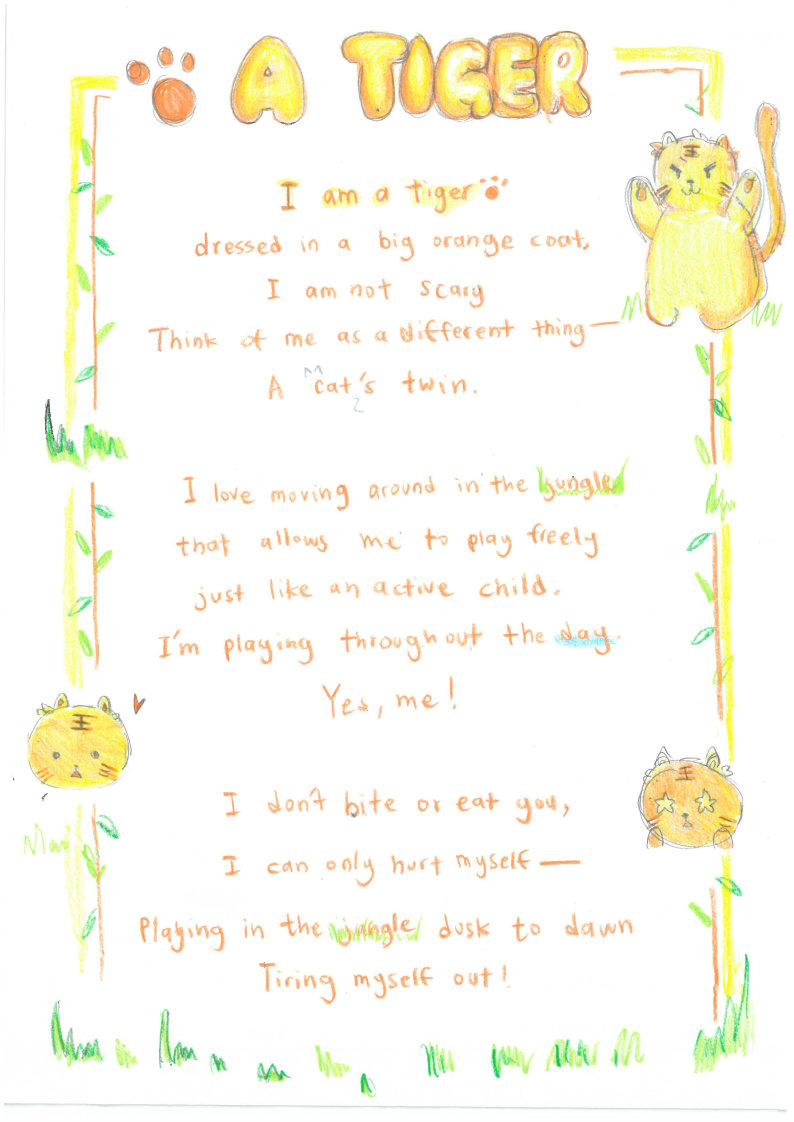 A TIGER
I am a tiger
dressed in a big orange coat,
I am not scary
Think of me as a different thing—
A cat's twin.
I love moving around in the jungle
that allows me to play freely
just like an active child.
I'm playing throughout the day.
Yes, me!
I don't bite or eat you,
I can only hurt myself—
Playing in the jungle dusk to dawn
Tiring myself out!